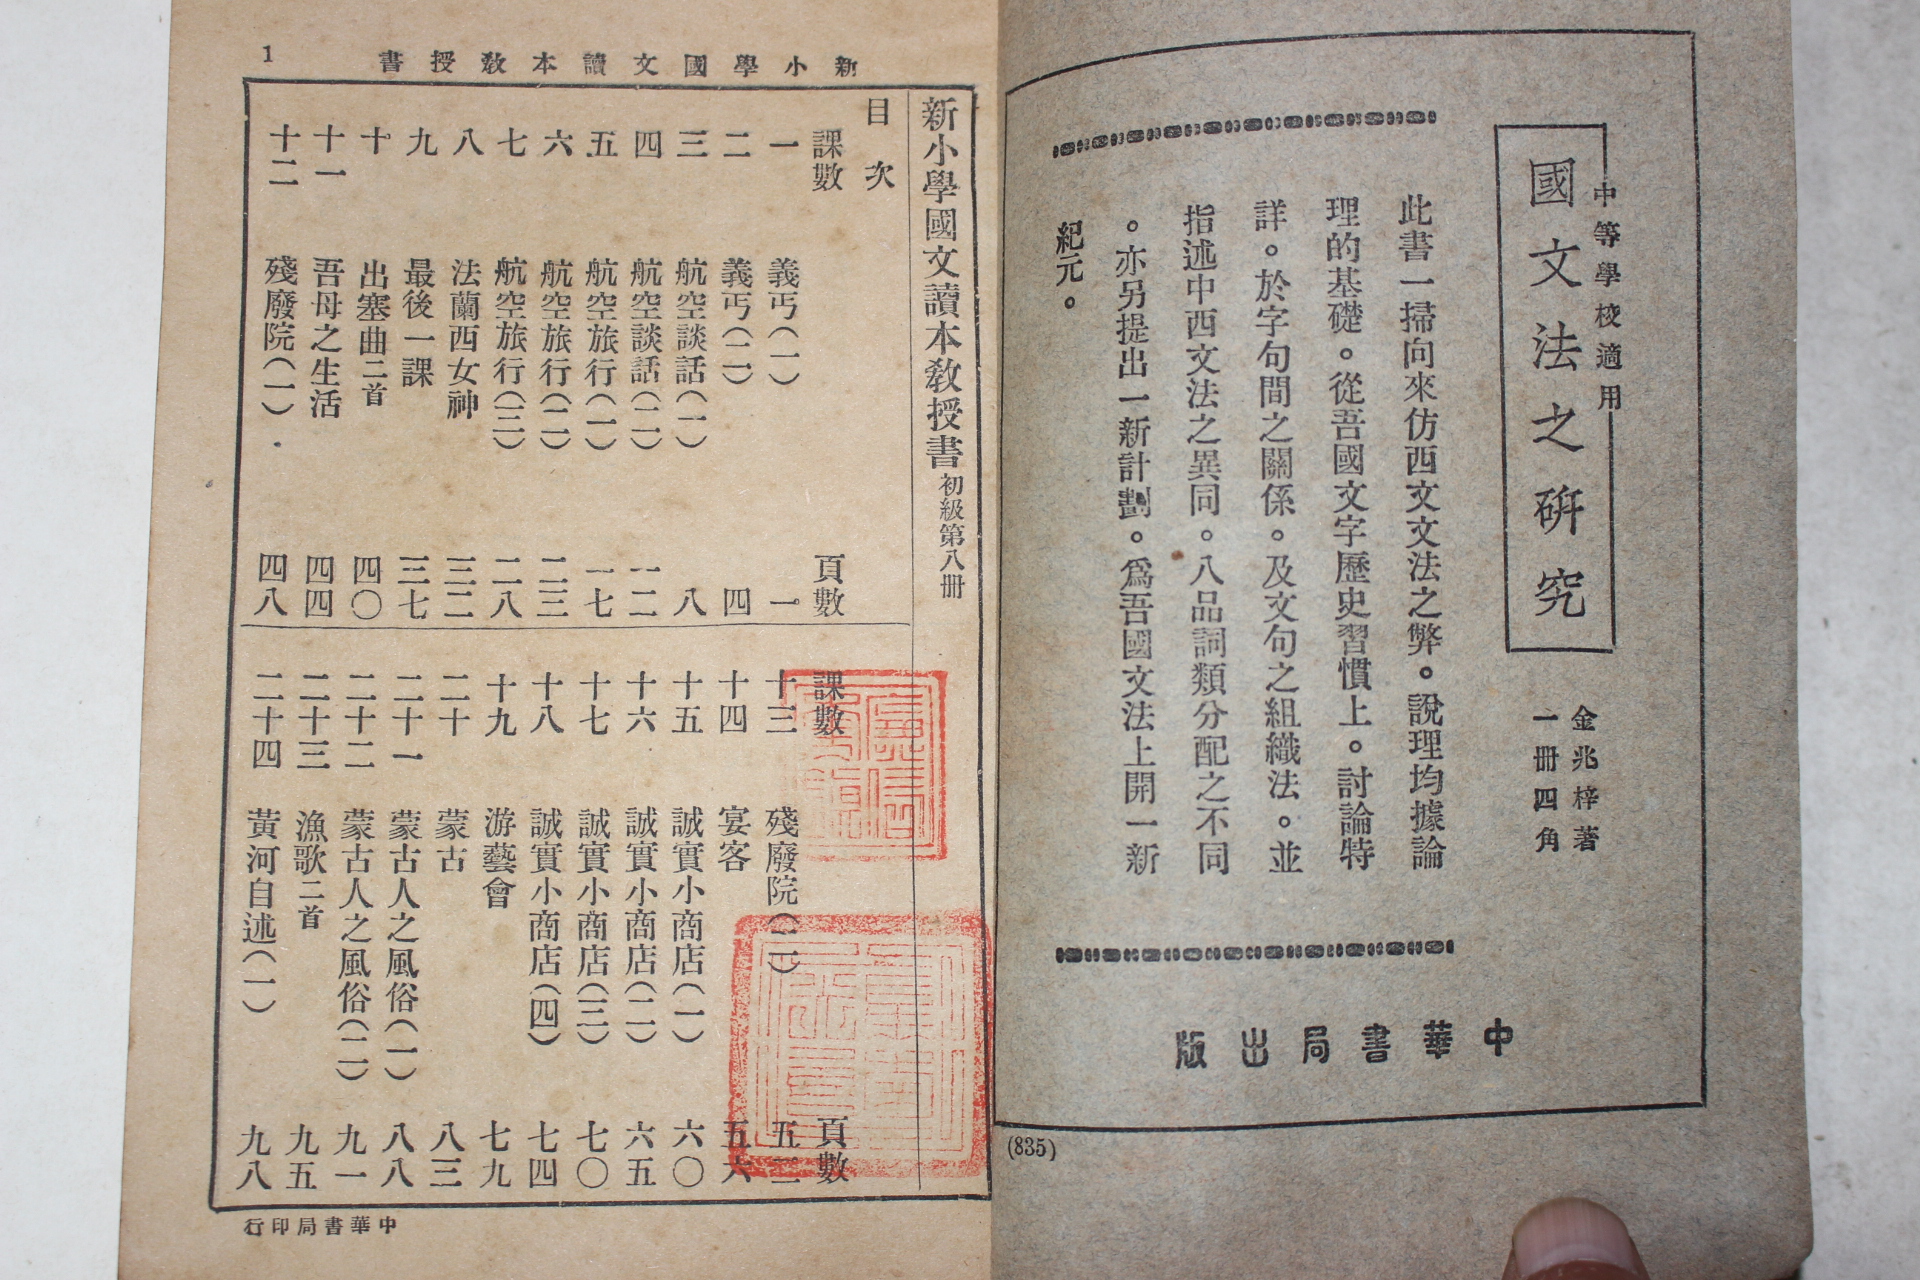 中等學校適用
國文法之硏究
金兆梓著
一冊四角
此書一掃向來仿西文文法之弊。說理均據論
理的基礎。從吾國文字歷史習慣上。討論特
詳。於字句間之關係。及文句之組織法。並
指述中西文法之異同。八品詞類分配之不同
。亦另提出一新計劃。爲吾國文法上開一新
紀元。
中華書局出版
(835)
新小學國文讀本敎授書
1
新小學國文讀本敎授書 初級第八冊
目次
課數 頁數
一 義丐(一) 一
二 義丐(二) 四
三 航空談話(一) 八
四 航空談話(二) 一二
五 航空旅行(一) 一七
六 航空旅行(二) 二三
七 航空旅行(三) 二八
八 法蘭西女神 三二
九 最後一課 三七
十 出塞曲二首 四〇
十一 吾母之生活 四四
十二 殘廢院(一) 四八
課數 頁數
十三 殘廢院(二) 五二
十四 宴客 五六
十五 誠實小商店(一) 六〇
十六 誠實小商店(二) 六五
十七 誠實小商店(三) 七〇
十八 誠實小商店(四) 七四
十九 游藝會 七九
二十 蒙古 八三
二十一 蒙古人之風俗(一) 八八
二十二 蒙古人之風俗(二) 九一
二十三 漁歌二首 九五
二十四 黃河自述(一) 九八
中華書局印行